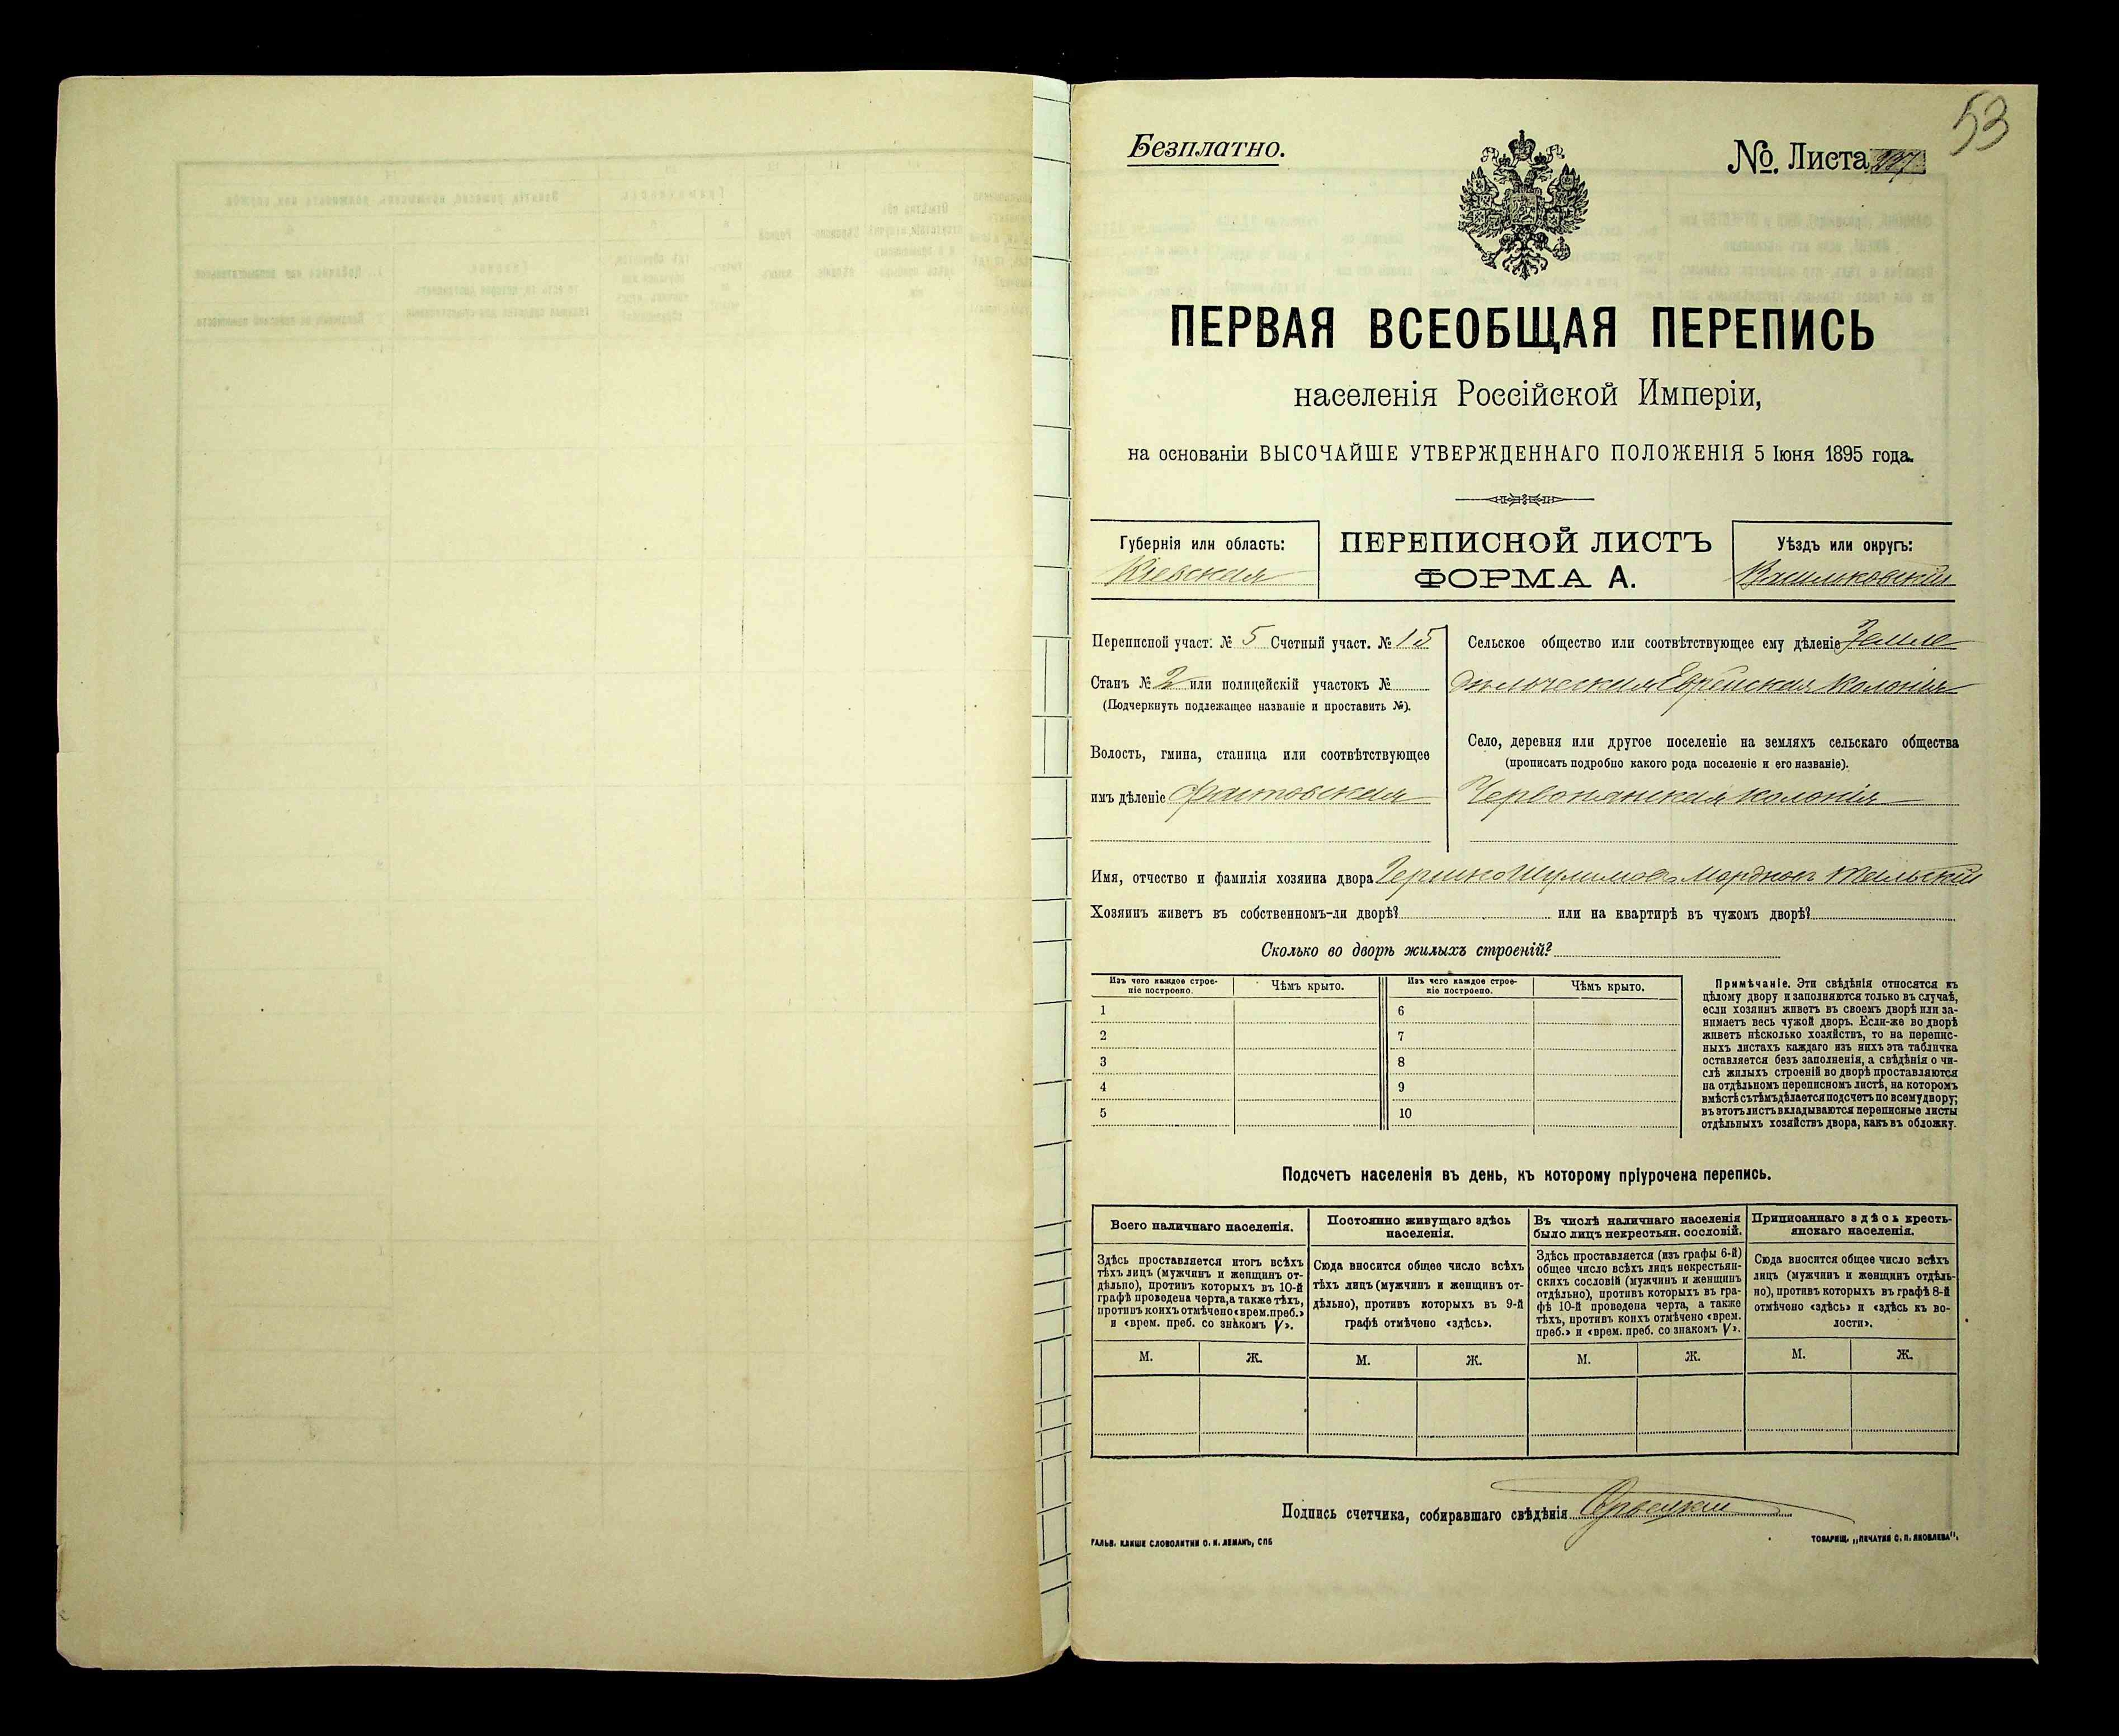 53
Безплатно.
№. Листа
ПЕРВАЯ ВСЕОБЩАЯ ПЕРЕПИСЬ
населенія Россійской Имперіи,
на основаніи ВЫСОЧАЙШЕ УТВЕРЖДЕННАГО ПОЛОЖЕНІЯ 5 Іюня 1895 года.
Губернія или область:
Кіевская
ПЕРЕПИСНОЙ ЛИСТЪ
ФОРМА А.
Уѣздъ или округъ:
Васильковскій
Переписной участ. № 5 Счетный участ. № 15
Станъ № 2 или полицейскій участокъ №
(Подчеркнуть подлежащее названіе и проставить №).
Волость, гмина, станица или соотвѣтствующее
имъ дѣленіе Фастовская
Сельское общество или соотвѣтствующее ему дѣленіе Земле
дѣльческая Еврейская колонія
Село, деревня или другое поселеніе на земляхъ сельскаго общества
(прописать подробно какого рода поселеніе и его названіе).
Червонянская колонія
Имя, отчество и фамилія хозяина двора Гершко Шулимовъ
Хозяинъ живетъ въ собственномъ-ли дворѣ? или на квартирѣ въ чужомъ дворѣ?
Сколько во дворѣ жилыхъ строеній?
Изъ чего каждое строе-
ніе построено.
Чѣмъ крыто.
Изъ чего каждое строе-
ніе построено.
Чѣмъ крыто.
1 6
2 7
3 8
4 9
5 10
Примѣчаніе. Эти свѣдѣнія относятся къ
цѣлому двору и заполняются только въ случаѣ,
если хозяинъ живетъ въ своемъ дворѣ или за-
нимаетъ весь чужой дворъ. Если-же во дворѣ
живетъ нѣсколько хозяйствъ, то на перепис-
ныхъ листахъ каждаго изъ нихъ эта табличка
оставляется безъ заполненія, а свѣдѣнія о чи-
слѣ жилыхъ строеній во дворѣ проставляются
на отдѣльномъ переписномъ листѣ, на которомъ
вмѣстѣ съ тѣмъ дѣлается подсчетъ по всему двору;
въ этотъ листъ вкладываются переписные листы
отдѣльныхъ хозяйствъ двора, какъ въ обложку.
Подсчетъ населенія въ день, къ которому пріурочена перепись.
Всего наличнаго населенія.
Здѣсь проставляется итогъ всѣхъ
тѣхъ лицъ (мужчинъ и женщинъ от-
дѣльно), противъ которыхъ въ 10-й
графѣ проведена черта, а также тѣхъ,
противъ коихъ отмѣчено «врем. преб.»
и «врем. преб. со знакомъ V».
М. Ж.
Постоянно живущаго здѣсь
населенія.
Сюда вносится общее число всѣхъ
тѣхъ лицъ (мужчинъ и женщинъ от-
дѣльно), противъ которыхъ въ 9-й
графѣ отмѣчено «здѣсь».
М. Ж.
Въ числѣ наличнаго населенія
было лицъ некрестьян. сословій.
Здѣсь проставляется (изъ графы 6-й)
общее число всѣхъ лицъ некрестьян-
скихъ сословій (мужчинъ и женщинъ
отдѣльно), противъ которыхъ въ гра-
фѣ 10-й проведена черта, а также
тѣхъ, противъ коихъ отмѣчено «врем.
преб.» и «врем. преб. со знакомъ V».
М. Ж.
Приписаннаго здѣсь кресть-
янскаго населенія.
Сюда вносится общее число всѣхъ
лицъ (мужчинъ и женщинъ отдѣль-
но), противъ которыхъ въ графѣ 8-й
отмѣчено «здѣсь» и «здѣсь къ во-
лости».
М. Ж.
Подпись счетчика, собиравшаго свѣдѣнія
ГАЛЬВ. КЛИШЕ СЛОВОЛИТНИ О. И. ЛЕМАНЪ, СПБ
ТОВАРИЩ. „ПЕЧАТНЯ С. П. ЯКОВЛЕВА".